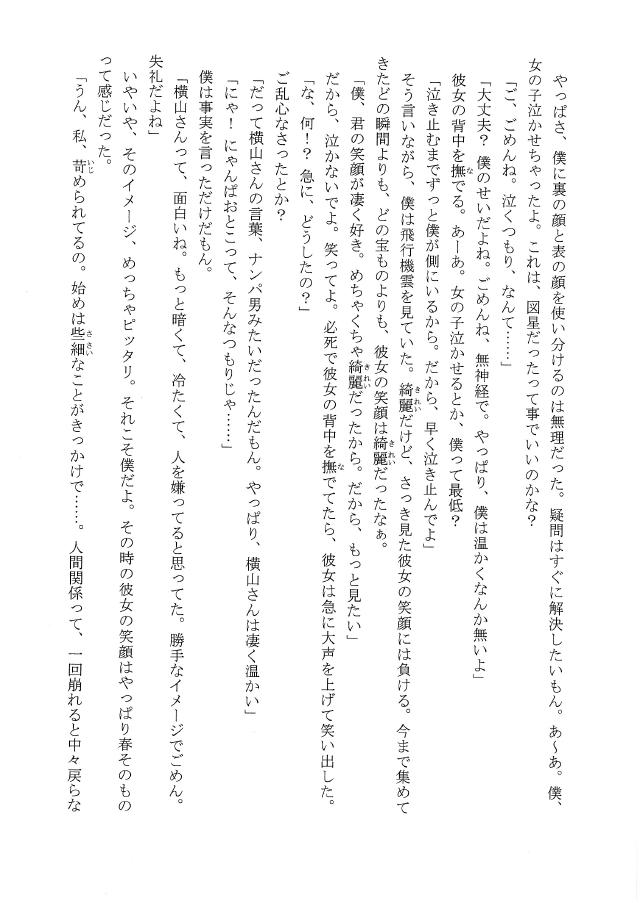 やっぱさ、僕に裏の顔と表の顔を使い分けるのは無理だった。疑問はすぐに解決したいもん。あ〜あ。僕、
女の子泣かせちゃったよ。これは、図星だったって事でいいのかな？
「ご、ごめんね。泣くつもり、なんて……」
「大丈夫？　僕のせいだよね。ごめんね、無神経で。やっぱり、僕は温かくなんか無いよ」
彼女の背中を撫でる。あーあ。女の子泣かせるとか、僕って最低？
「泣き止むまでずっと僕が側にいるから。だから、早く泣き止んでよ」
そう言いながら、僕は飛行機雲を見ていた。綺麗だけど、さっき見た彼女の笑顔には負ける。今まで集めて
きたどの瞬間よりも、どの宝ものよりも、彼女の笑顔は綺麗だったなぁ。
「僕、君の笑顔が凄く好き。めちゃくちゃ綺麗だったから。だから、もっと見たい」
だから、泣かないでよ。笑ってよ。必死で彼女の背中を撫でてたら、彼女は急に大声を上げて笑い出した。
「な、何！？　急に、どうしたの？」
ご乱心なさったとか？
「だって横山さんの言葉、ナンパ男みたいだったんだもん。やっぱり、横山さんは凄く温かい」
「にゃ！　にゃんぱおとこって、そんなつもりじゃ……」
僕は事実を言っただけだもん。
「横山さんって、面白いね。もっと暗くて、冷たくて、人を嫌ってると思ってた。勝手なイメージでごめん。
失礼だよね」
いやいや、そのイメージ、めっちゃピッタリ。それこそ僕だよ。その時の彼女の笑顔はやっぱり春そのもの
って感じだった。
「うん、私、苛められてるの。始めは些細なことがきっかけで……。人間関係って、一回崩れると中々戻らな